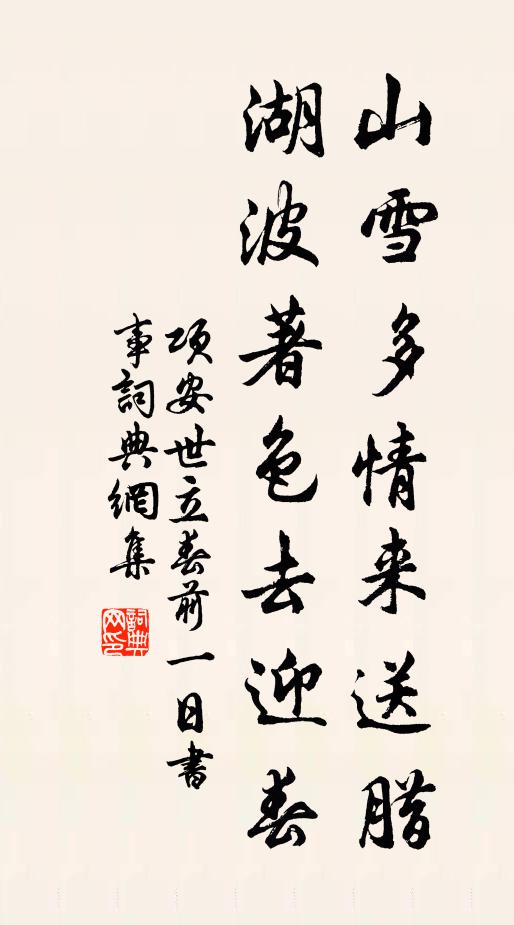 山雪多情来送腊
湖波著色去迎春
項安世立春前一日書
事詞典網集
詞典网印